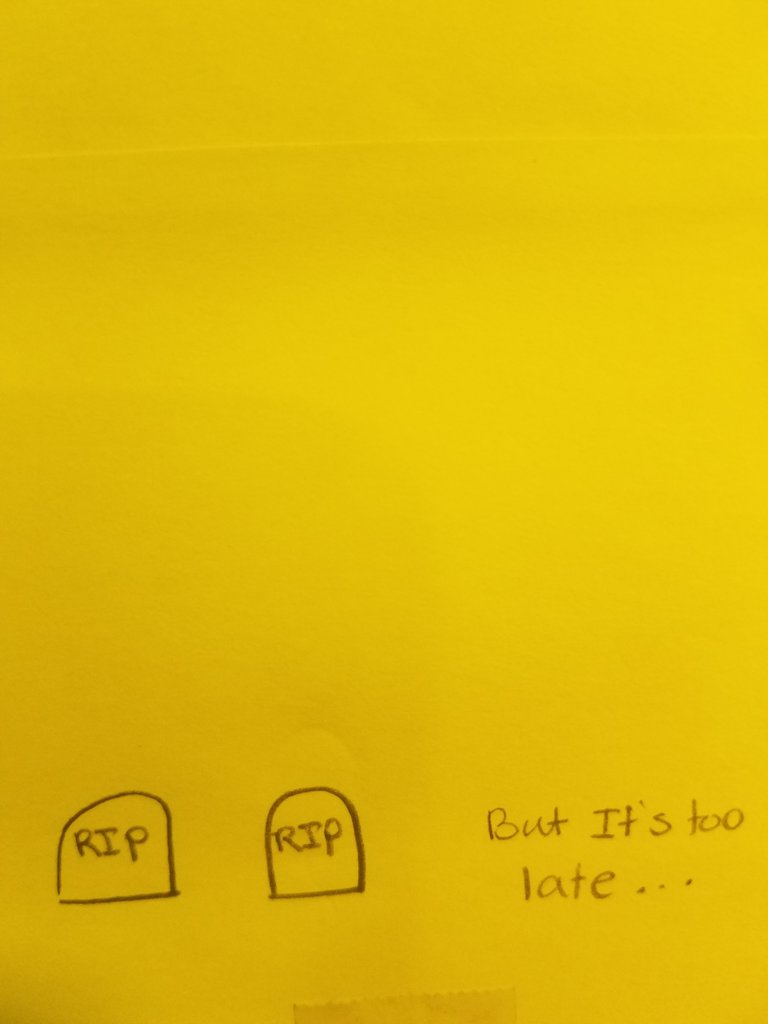 RIP
RIP
But It's too
late...